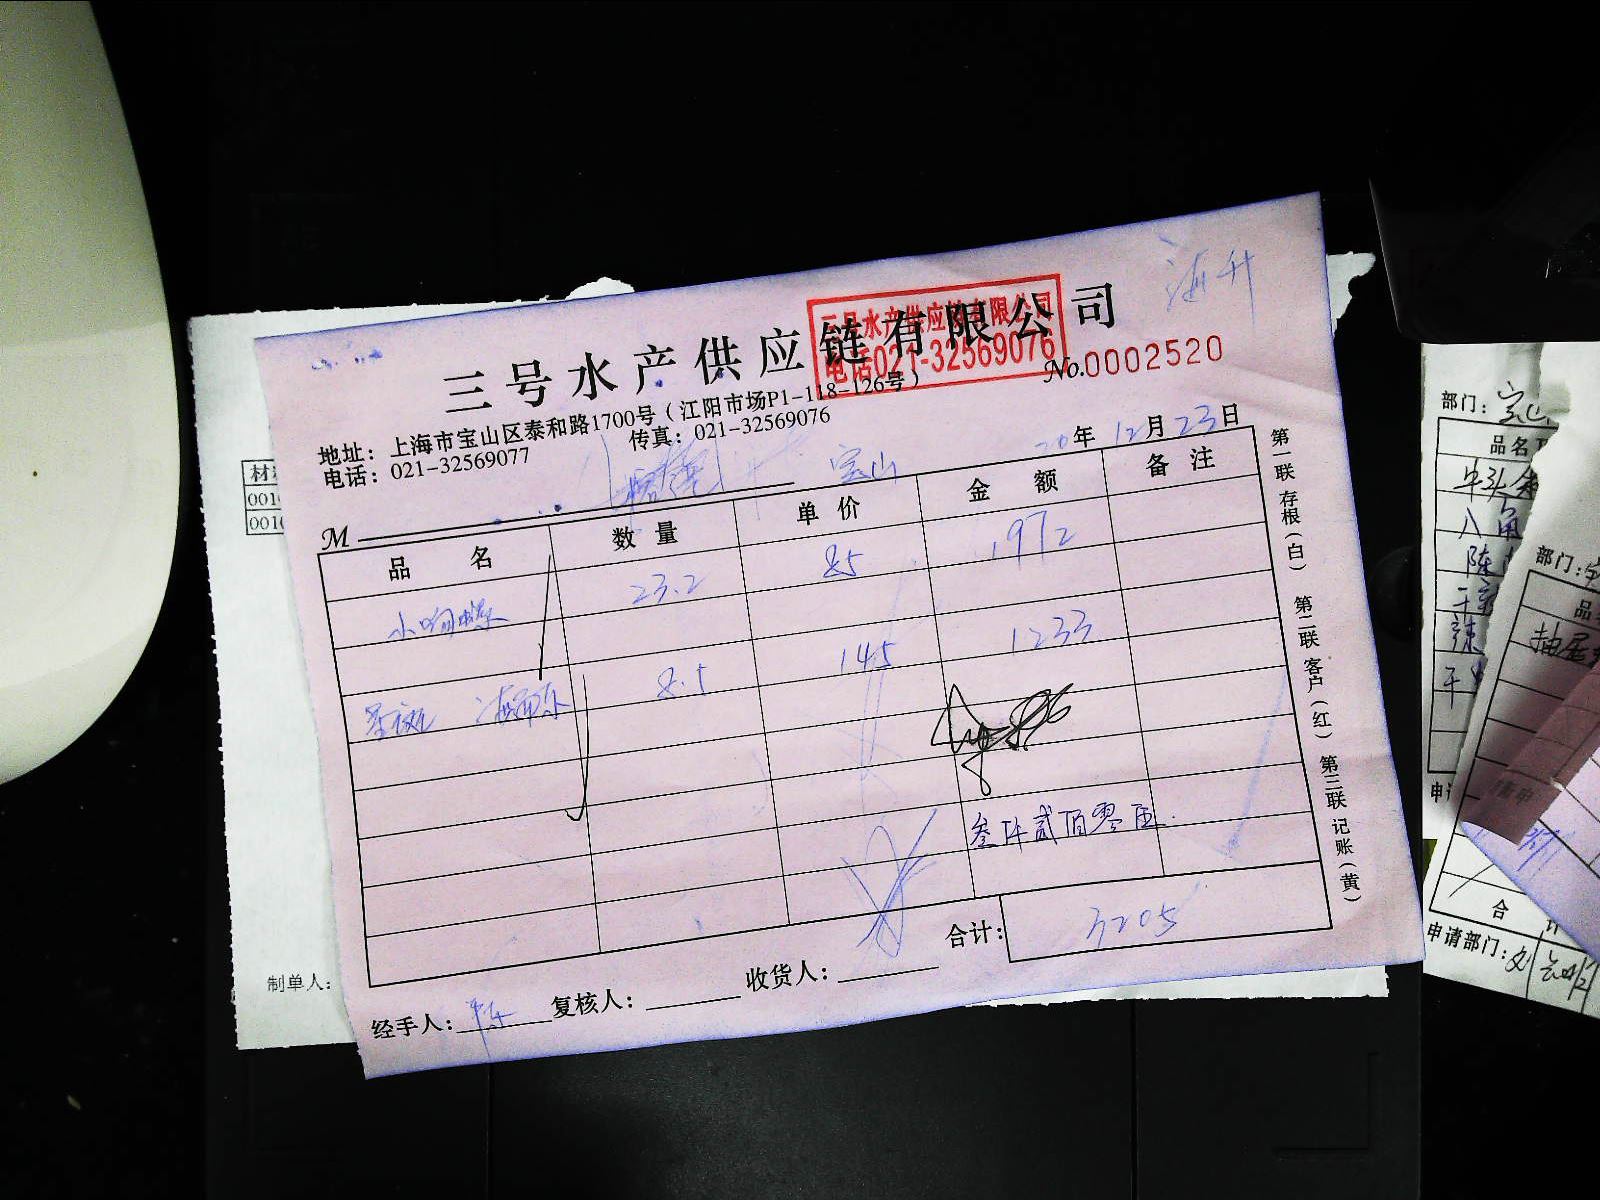 海升
三号水产供应链有限公司
三号水产供应链有限公司
电话021-32569076
No.0002520
地址：上海市宝山区泰和路1700号（江阳市场P1-118-126号）
电话：021-32569077 传真：021-32569076
M 宝山 20年12月23日
品名 数量 单价 金额 备注
小响螺 23.2 85 1972
8.5 145 1233
叁仟贰佰零伍
合计：3205
经手人： 复核人： 收货人：
第一联 存根（白） 第二联 客户（红） 第三联 记账（黄）
材
001
001
制单人：
部门：宝山
品名
牛头
八角
陈
干
辣
干
申
部门：
品
抽
合计
申请部门：